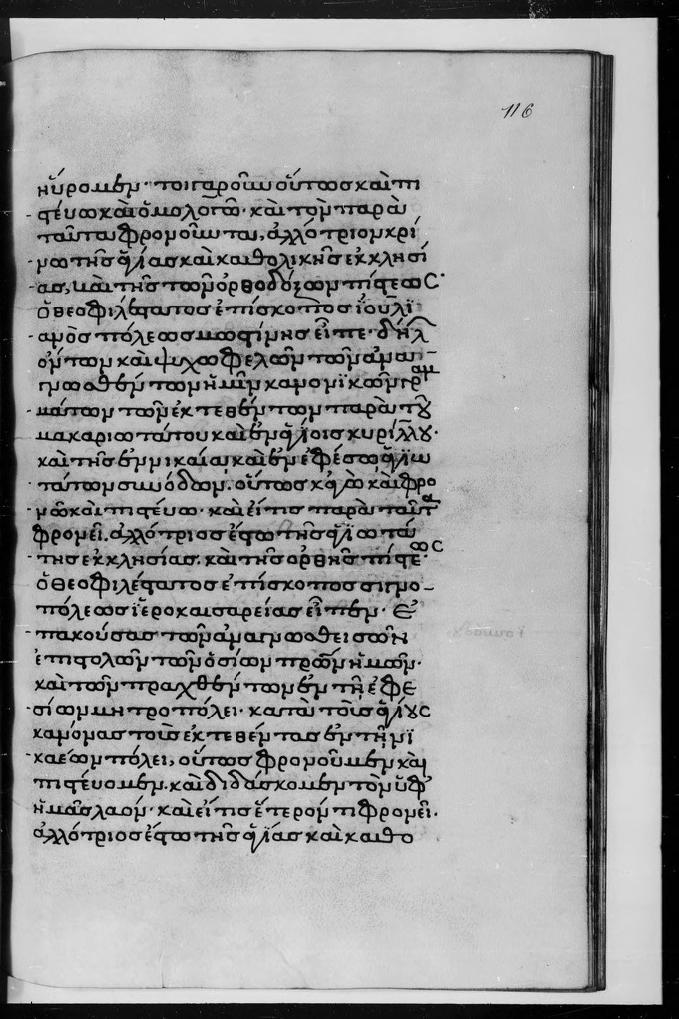 116
ηὕρομεν· τοιγαροῦν οὕτως καὶ πι
στεύω καὶ ὁμολογῶ· καὶ τὸν παρὰ
ταῦτα φρονοῦντα, ἀλλότριον κρί
νω τῆς ἁγίας καὶ καθολικῆς ἐκκλησί
ας, καὶ τῆς τῶν ὀρθοδόξων πίστεως·
ὁ θεοφιλέστατος ἐπίσκοπος ἰουλι
ανὸς πόλεως μωστίνης εἶπε· δηλ
όντων καὶ ψυχωφελῶν τῶν ἀνα
γνωσθέντων ἡμῖν κανονικῶν γραμ
μάτων τῶν ἐκτεθέντων παρὰ τοῦ
μακαριωτάτου καὶ ἐν ἁγίοις κυρίλλου·
καὶ τῆς ἐν νικαίᾳ καὶ ἐν ἐφέσῳ ἁγιω
τάτων συνόδων. οὕτως κἀγὼ καὶ φρο
νῶ καὶ πιστεύω· καὶ εἴ τις παρὰ ταῦτα
φρονεῖ. ἀλλότριος ἔστω τῆς ἁγιωτά
της ἐκκλησίας. καὶ τῆς ὀρθῆς πίστεως·
ὁ θεοφιλέστατος ἐπίσκοπος σιγνο
πόλεως ἱεροκαισαρείας εἶπεν· ἐ
πακούσας τῶν ἀναγνωσθεισῶν
ἐπιστολῶν τῶν ὁσίων πατρῶν ἡμῶν·
καὶ τῶν πραχθέντων ἐν τῇ ἐφε
σίων μητροπόλει· κατὰ τοὺς ἁγίους
κανόνας τοὺς ἐκτεθέντας ἐν τῇ νι
καέων πόλει, οὕτως φρονοῦμεν καὶ
πιστεύομεν. καὶ διδάσκομεν τὸν ὑφ᾽
ἡμᾶς λαόν· καὶ εἴ τις ἕτερόν τι φρονεῖ·
ἀλλότριος ἔστω τῆς ἁγίας καὶ καθο